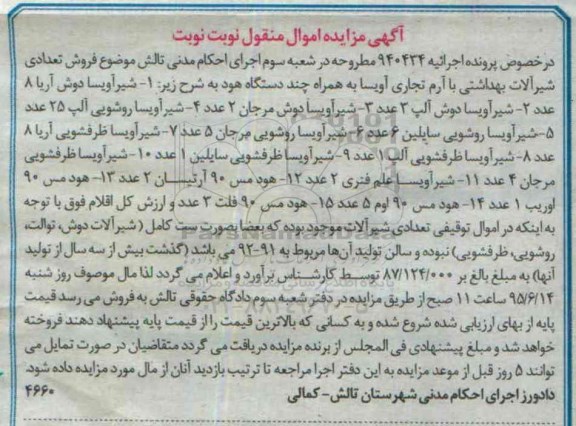 آگهی مزایده اموال منقول نوبت نوبت
درخصوص پرونده اجرائیه ۹۴۰۴۳۴ مطروحه در شعبه سوم اجرای احکام مدنی تالش موضوع فروش تعدادی
شیرآلات بهداشتی با آرم تجاری آویسا به همراه چند دستگاه هود به شرح زیر: ۱- شیرآویسا دوش آریا ۸
عدد ۲- شیرآویسا دوش آلپ ۳ عدد ۳- شیرآویسا دوش مرجان ۲ عدد ۴- شیرآویسا روشویی آلپ ۲۵ عدد
۵-شیرآویسا روشویی ساپلین ۶ عدد ۶- شیرآویسا روشویی مرجان ۵ عدد ۷- شیرآویسا ظرفشویی آریا ۸
عدد ۸- شیرآویسا ظرفشویی آلپ ۱ عدد ۹- شیرآویسا ظرفشویی سابلین ۱ عدد ۱۰- شیرآویسا ظرفشویی
مرجان ۴ عدد ۱۱- شیرآویسا علم فنری ۲ عدد ۱۲- هود مس ۹۰ آرتیان ۲ عدد ۱۳- هود مس ۹۰
اوریب ۱ عدد ۱۴- هود مس ۹۰ اوم ۵ عدد ۱۵- هود مس ۹۰ فلت ۳ عدد و ارزش کل اقلام فوق با توجه
به اینکه در اموال توقیفی تعدادی شیرآلات موجود بوده که بعضا بصورت ست کامل (شیرآلات دوش، توالت،
روشویی، ظرفشویی) نبوده و سالن تولید آن‌ها مربوط به ۹۱-۹۲ می باشد (گذشت بیش از سه سال از تولید
آنها) به مبلغ بالغ بر ۸۷/۱۲۴/۰۰۰ توسط کارشناس برآورد و اعلام می گردد لذا مال موصوف روز شنبه
۹۵/۶/۱۴ ساعت ۱۱ صبح از طریق مزایده در دفتر شعبه سوم دادگاه حقوقی تالش به فروش می رسد قیمت
پایه از بهای ارزیابی شده شروع شده و به کسانی که بالاترین قیمت را از قیمت پایه پیشنهاد دهند فروخته
خواهد شد و مبلغ پیشنهادی فی المجلس از برنده مزایده دریافت می گردد متقاضیان در صورت تمایل می
توانند ۵ روز قبل از موعد مزایده به این دفتر اجرا مراجعه تا ترتیب بازدید آنان از مال مورد مزایده داده شود.
دادورز اجرای احکام مدنی شهرستان تالش- کمالی
۴۶۶۰